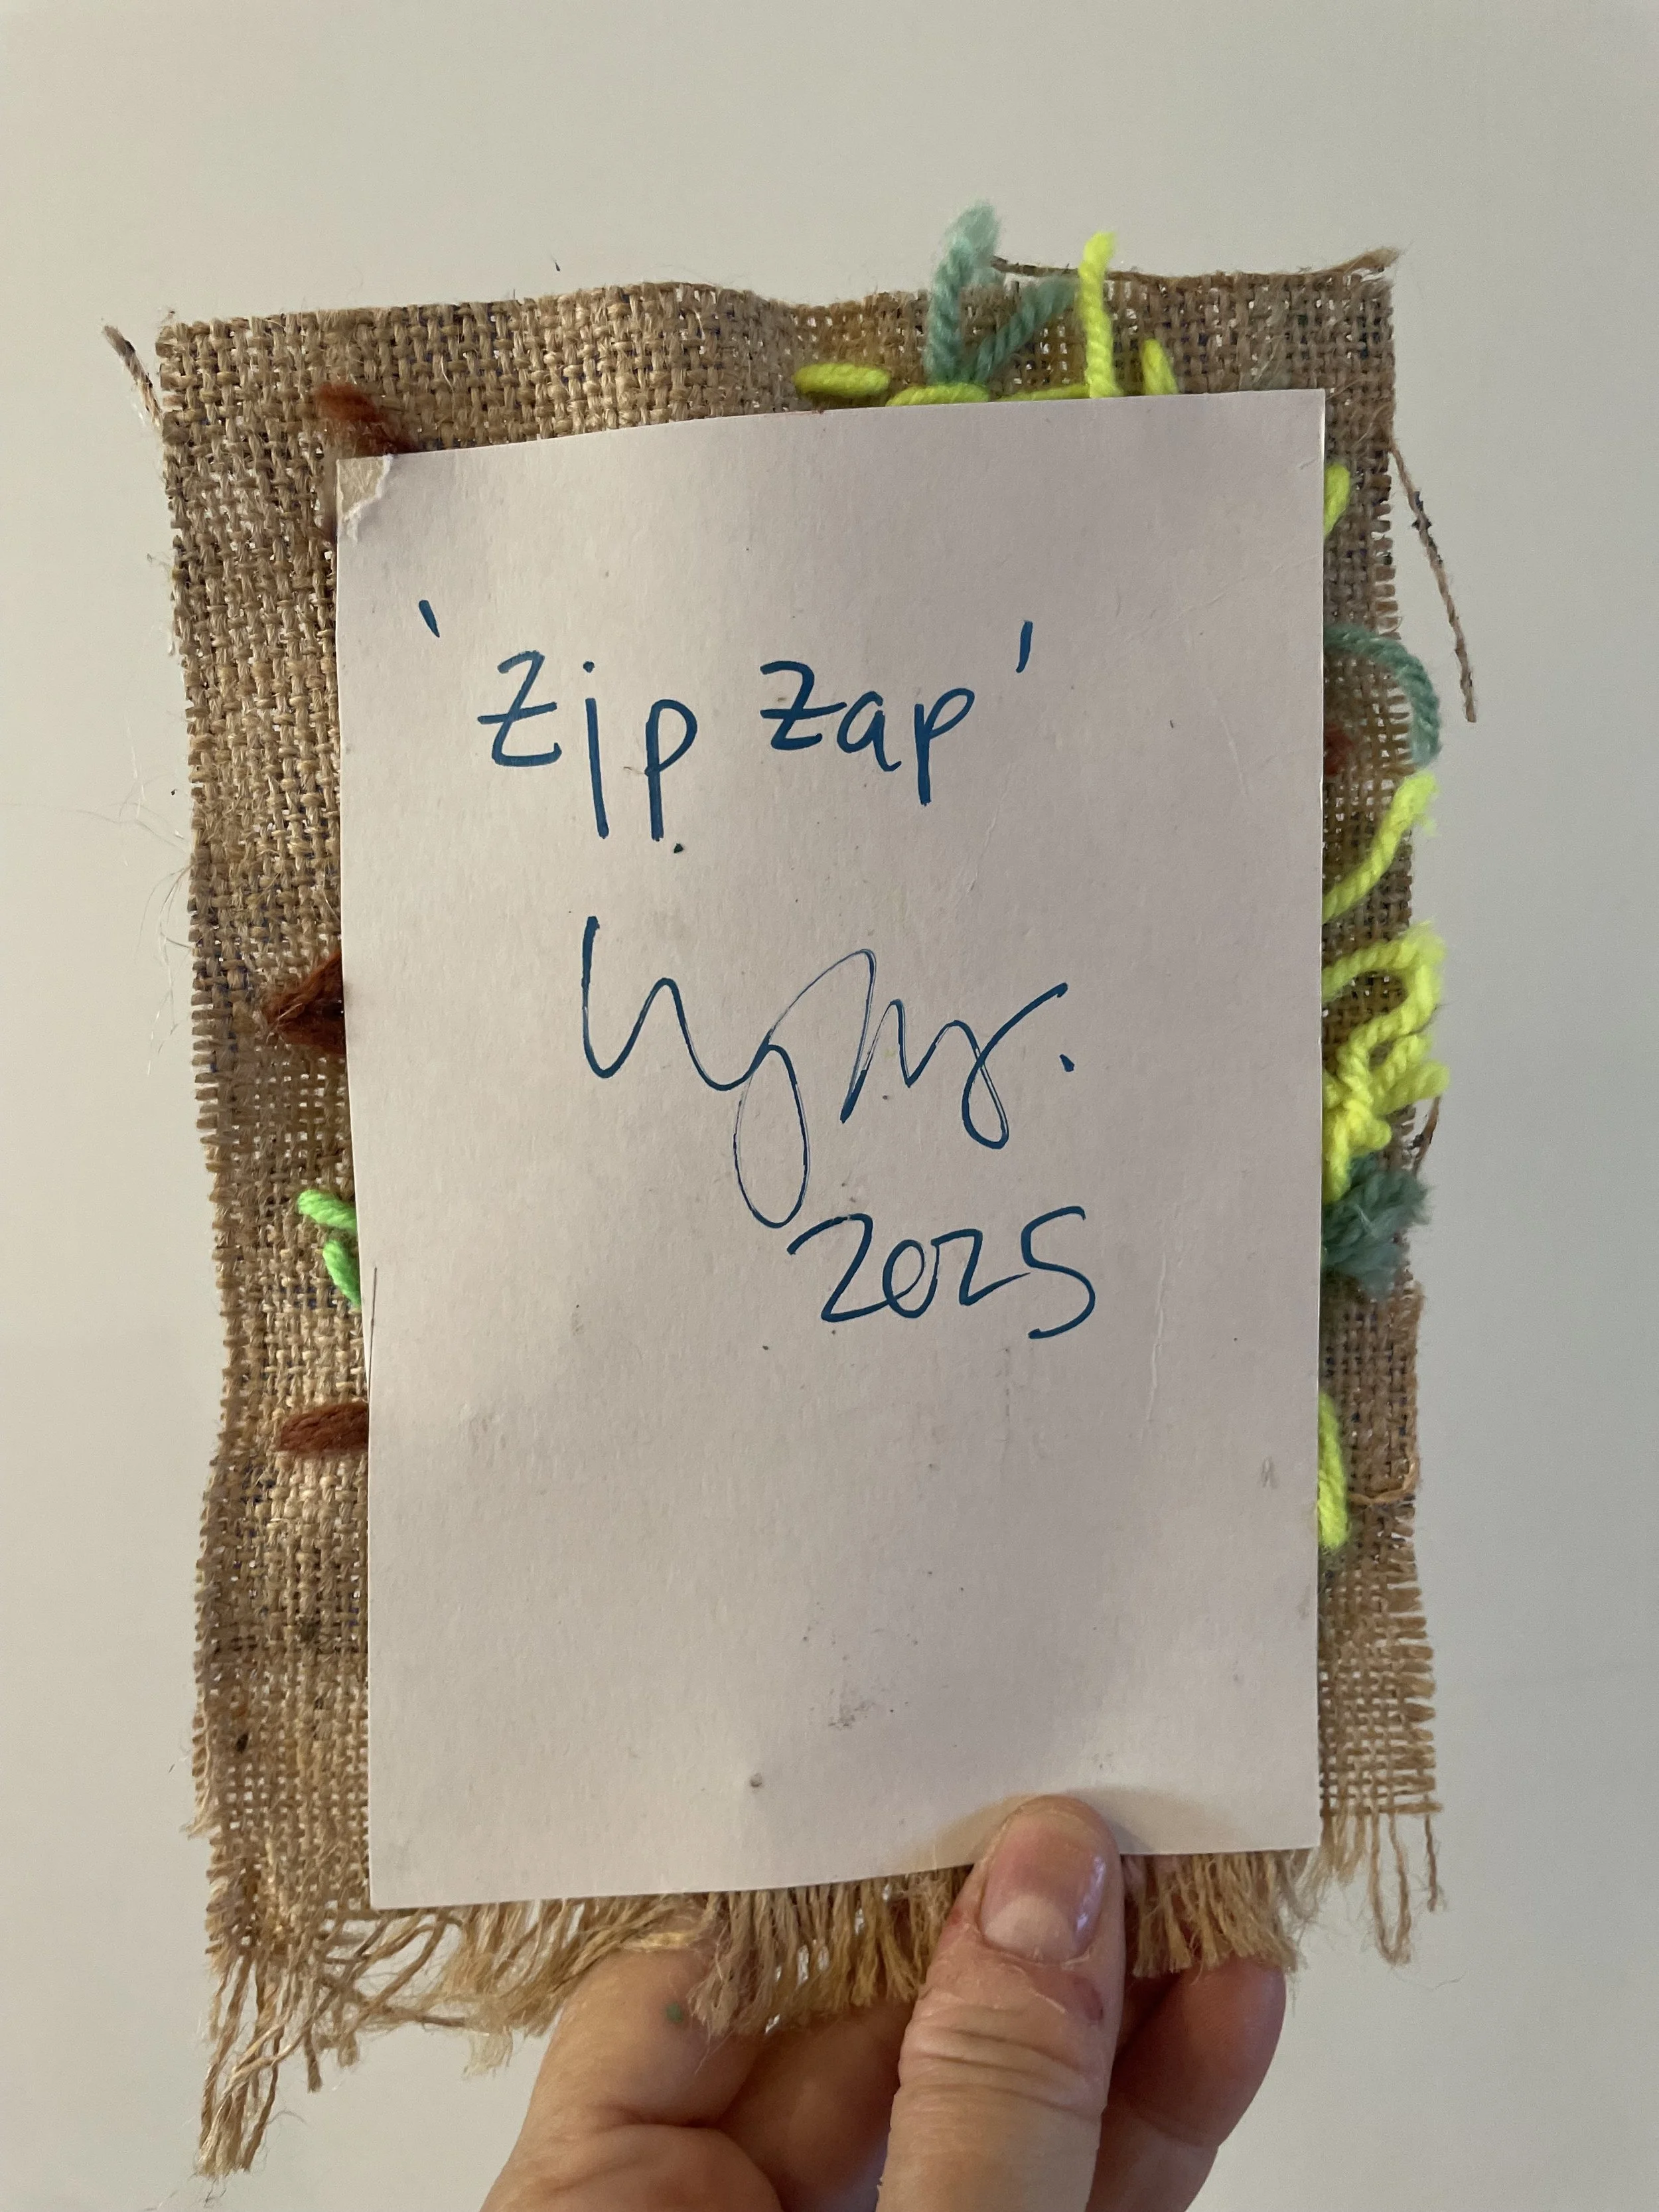 'Zip Zap'
2025